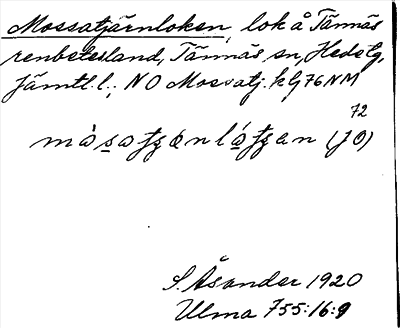 Mossatjärnloken, lok å Tännäs
renbetesland, Tännäs sn, Hede tg,
Jämtl. l.; NO Mossatj. kbl 76 NM
72
(JO)
S. Åsander 1920
Ulma 755:16:9